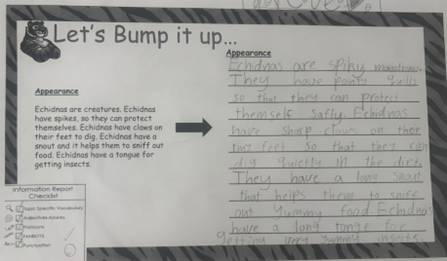 Let's Bump it up...
Appearance
Echidnas are creatures. Echidnas
have spikes, so they can protect
themselves. Echidnas have claws on
their feet to dig. Echidnas have a
snout and it helps them to sniff out
food. Echidnas have a tongue for
getting insects.
Information Report
Checklist
Topic Specific Vocabulary
Pronouns
Punctuation
Appearance
Echidnas are spiky
They have quills
so that they can protect
themself safly. Echidnas
have sharp claws on ther
feet so that they can
dig in the dirt.
They have a long snout
that helps them to sniff
out yummy food Echidnas
have a long tonge for
getting very yummy insects.